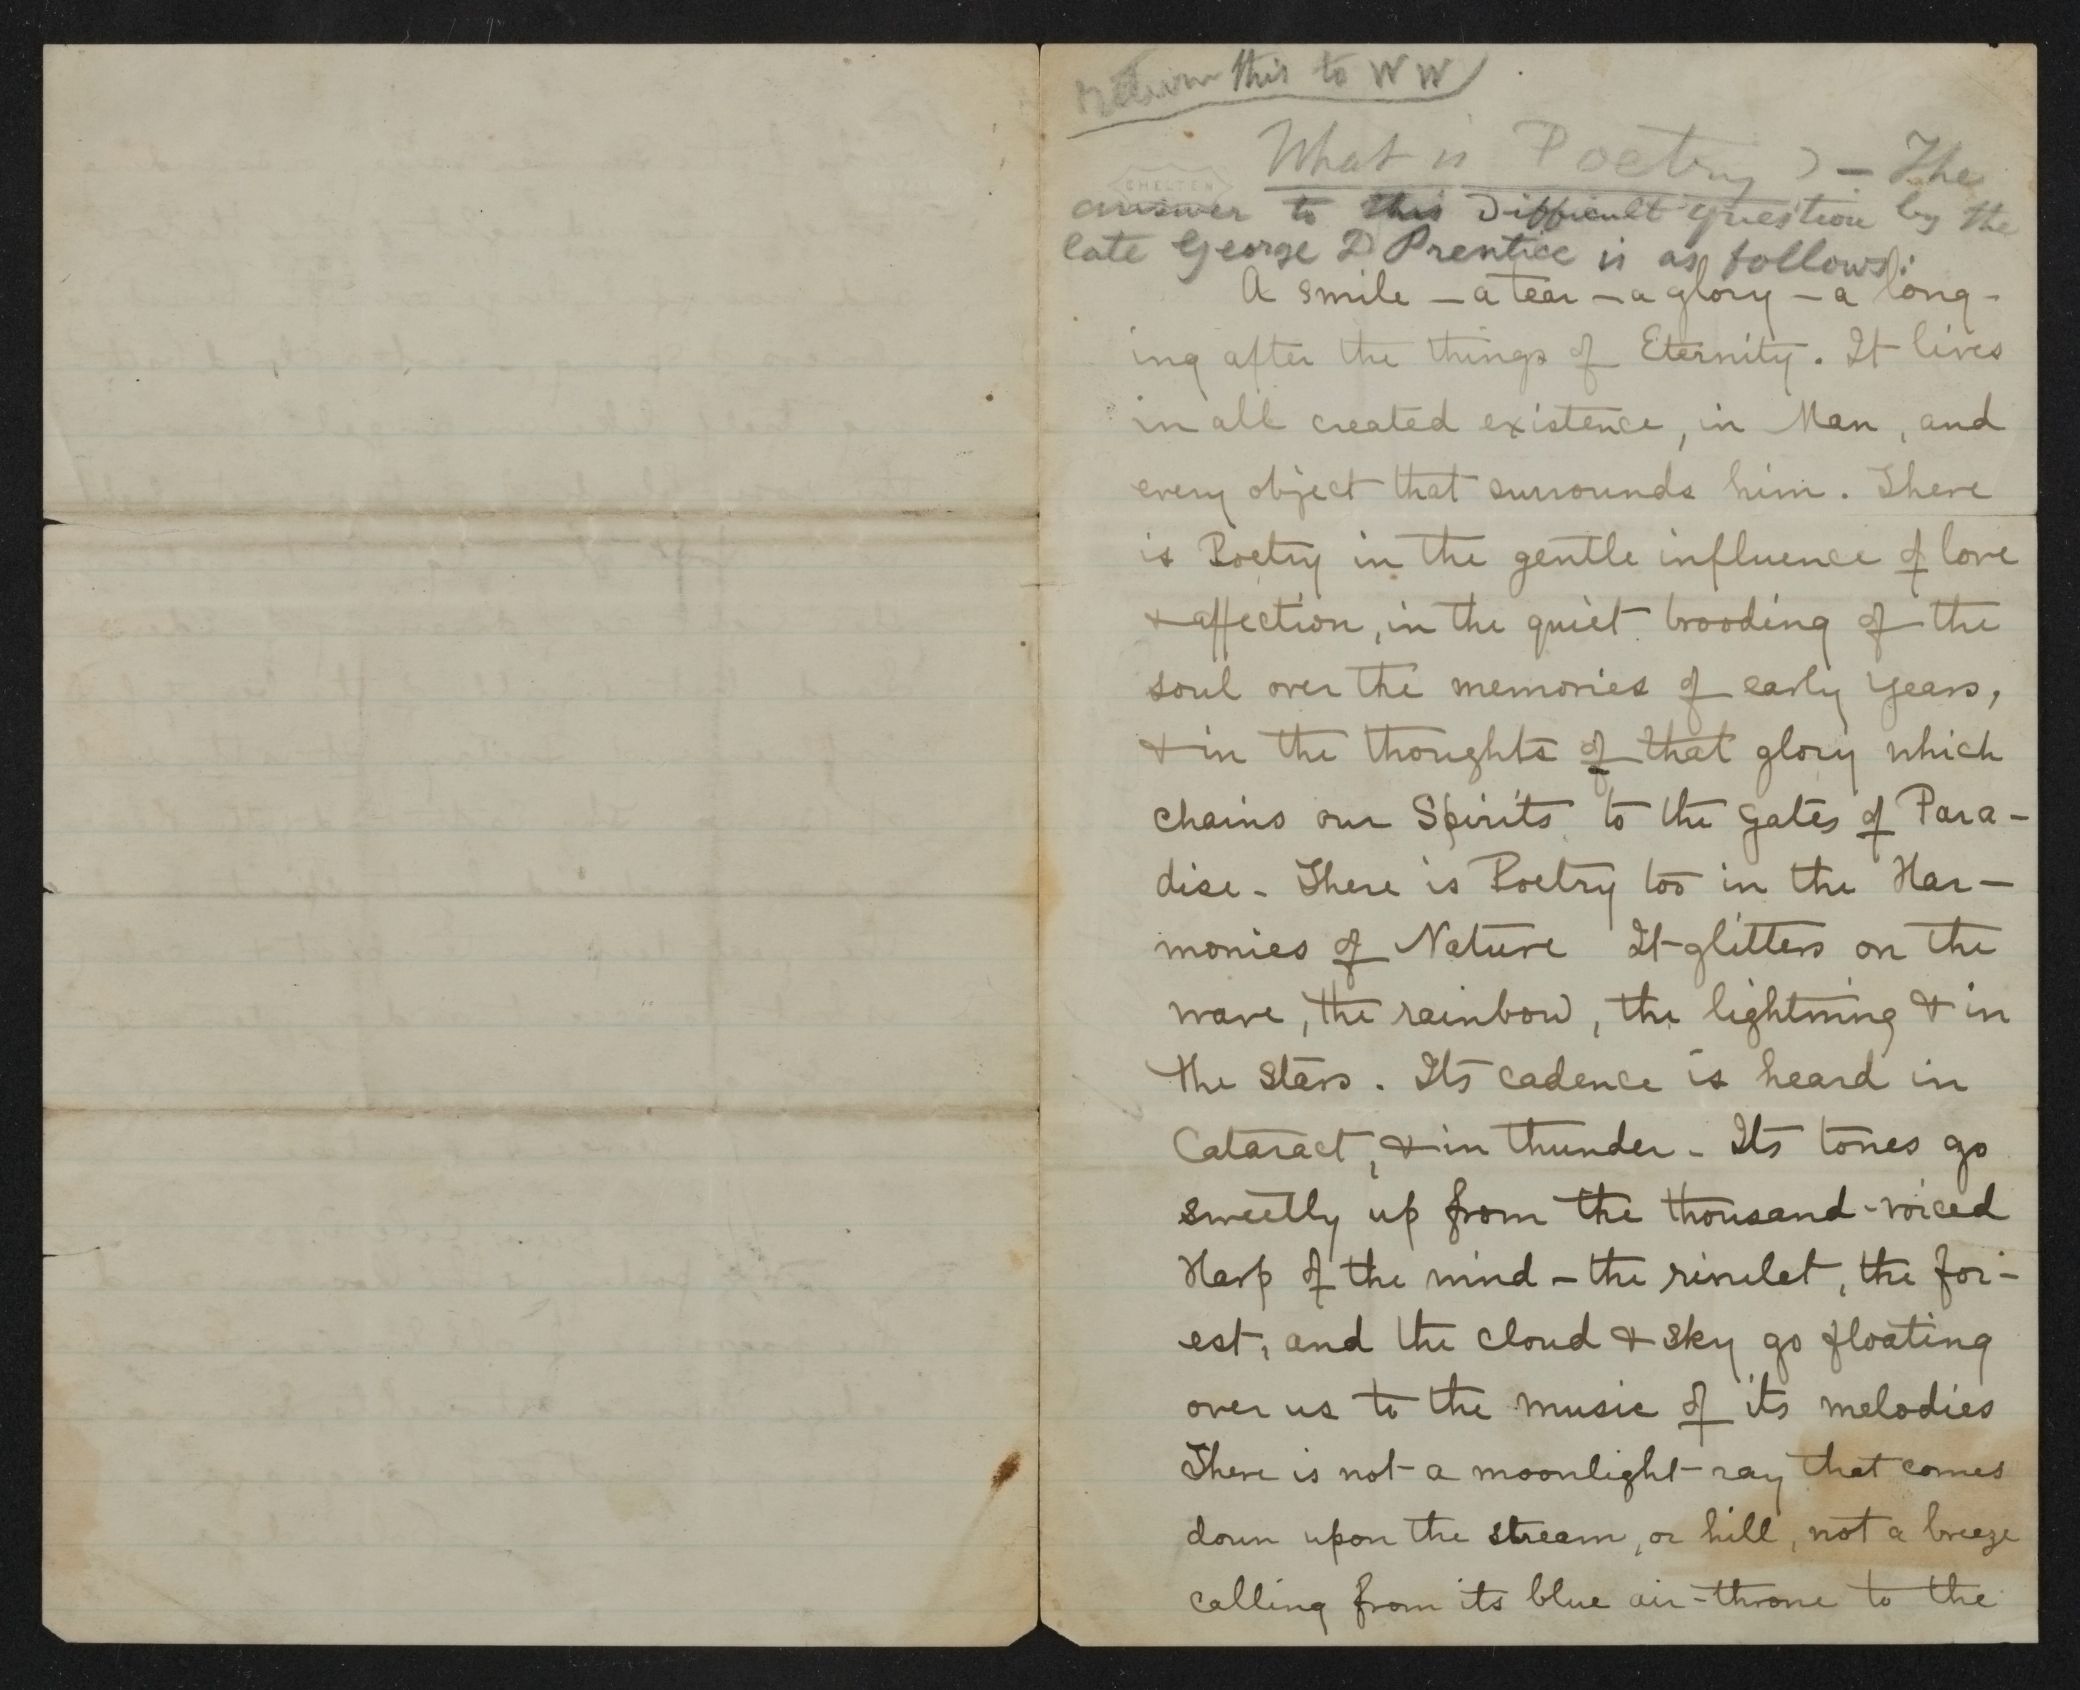 Return this to WW
What is Poetry? — The
CHELTEN
answer to this Difficult question by the
late George D Prentice is as follows:
A smile — a tear — a glory — a long-
ing after the things of Eternity. It lives
in all created existence, in Man, and
every object that surrounds him. There
is Poetry in the gentle influence of love
& affection, in the quiet brooding of the
soul over the memories of early years,
& in the thoughts of that glory which
chains our Spirits to the gates of Para-
dise - There is Poetry too in the Har-
monies of Nature It glitters on the
wave, the rainbow, the lightning & in
the Stars. Its cadence is heard in
Cataract, & in thunder - Its tones go
sweetly up from the thousand-voiced
Harp of the wind - the rivulet, the for-
est, and the cloud & sky go floating
over us to the music of its melodies
There is not a moonlight-ray that comes
down upon the stream, or hill, not a breeze
calling from its blue air-throne to the